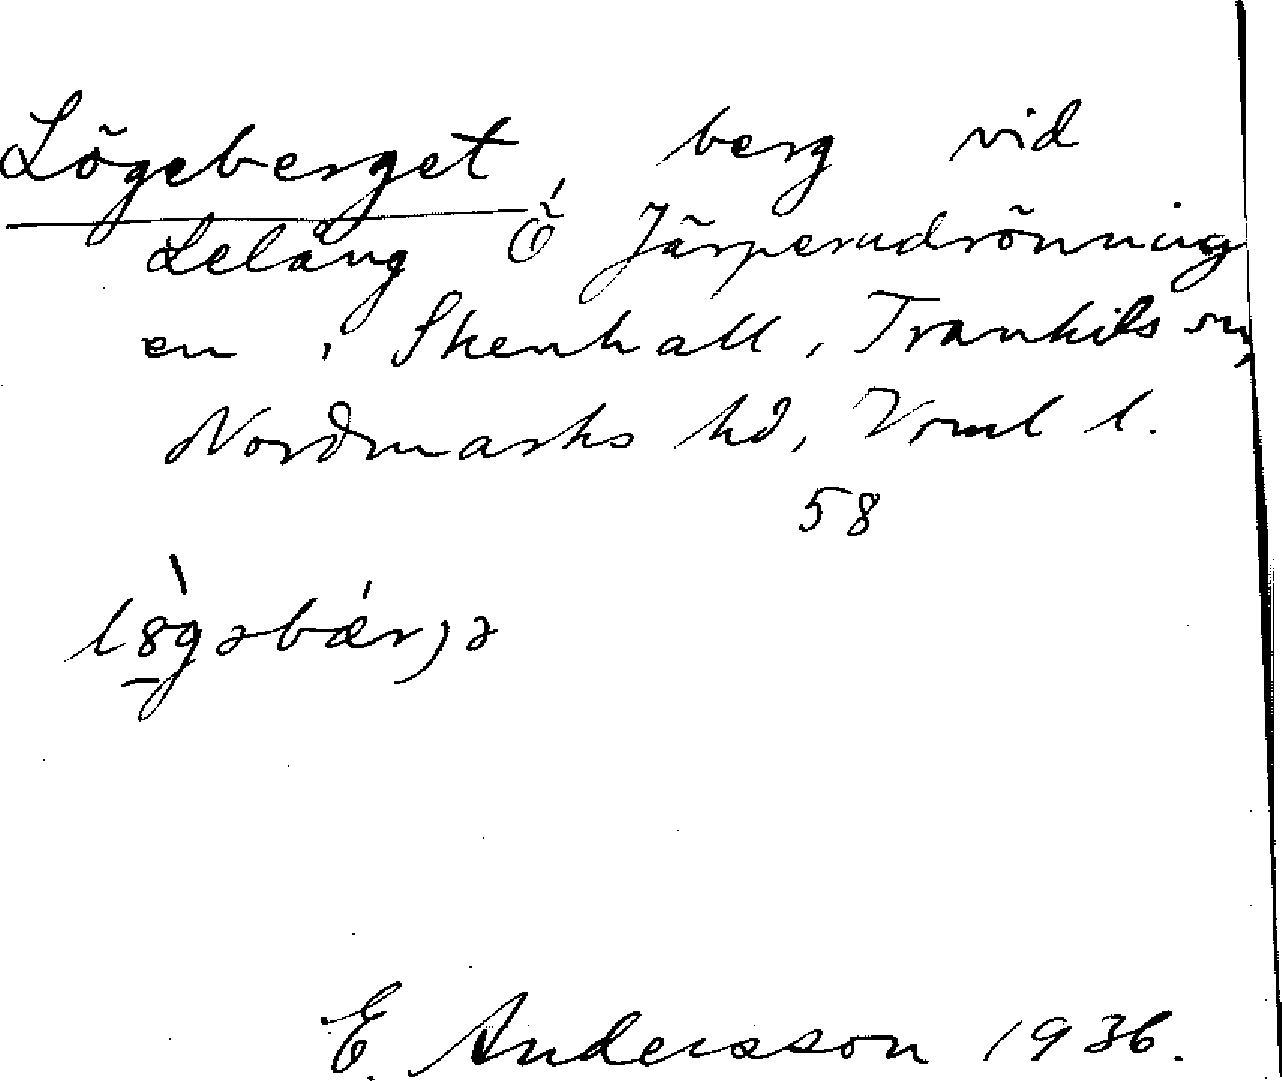 Lögeberget, berg vid
Lelång Ö Järperudrönning
en, Skenhall, Trankils sn,
Nordmarks hd, Vrml l.
58
l8gəbǽrjə
E. Andersson 1936.